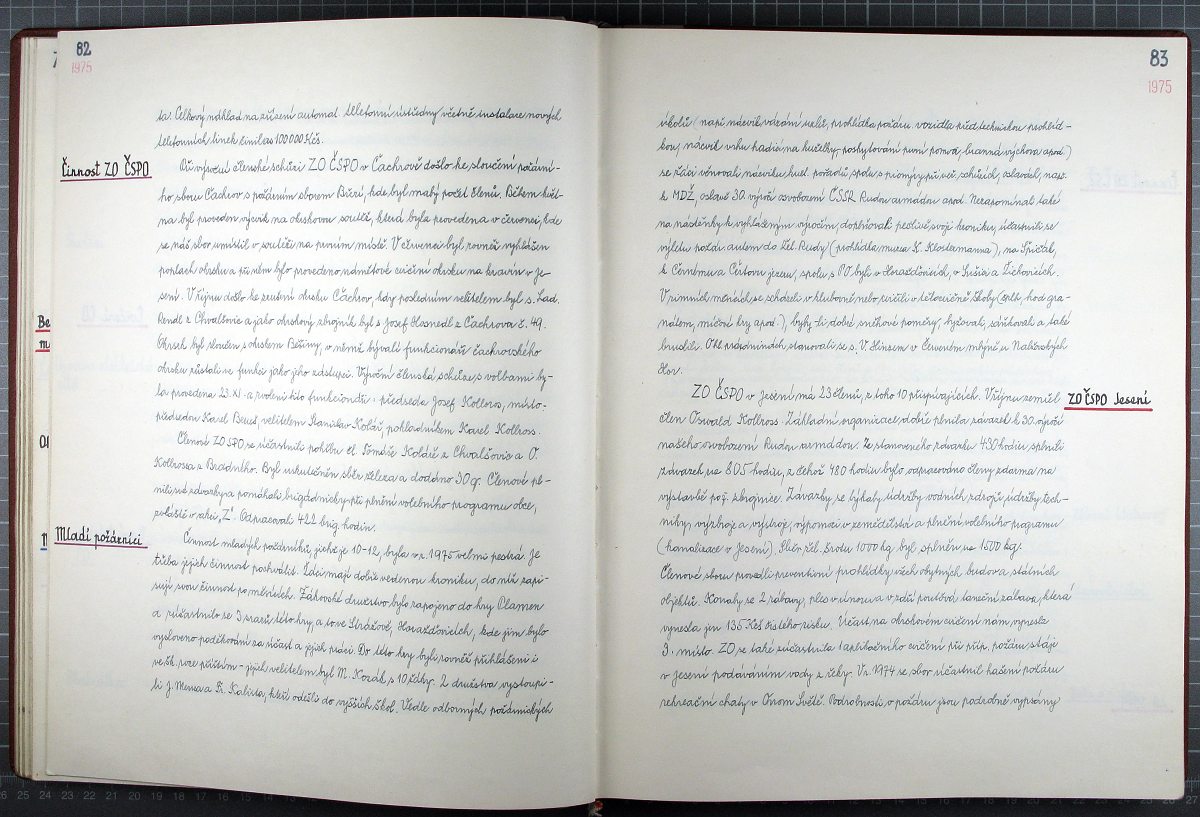 82
1975
ta. Celkový náklad na zřízení automat. telefonní ústředny včetně instalace nových
telefonních linek činil as 100 000 Kčs.
Činnost ZO ČSPO
Při výroční členské schůzi ZO ČSPO v Čachrově došlo ke sloučení požární-
ho sboru Čachrov s požárním sborem Bížení, kde byl malý počet členů. Během květ-
na byl proveden výcvik na okrskovou soutěž, která byla provedena v červenci, kde
se náš sbor umístil v soutěži na prvním místě. V červenci byl rovněž vyhlášen
poplach okrsku a při něm bylo provedeno námětové cvičení okrsku na kravín v Je-
sení. V říjnu došlo ke zrušení okrsku Čachrov, kdy posledním velitelem byl s. Lad.
Rendl z Chvalšovic a jako okrskový zbrojník byl s. Josef Hosnedl z Čachrova č. 49.
Okrsek byl sloučen s okrskem Běšiny, v němž bývalí funkcionáři čachrovského
okrsku zůstali ve funkci jako jeho zástupci. Výroční členská schůze s volbami by-
la provedena 23. XI. a zvoleni tito funkcionáři: předseda Josef Kollros, místo-
předsedou Karel Beneš, velitelem Stanislav Kolář, pokladníkem Karel Kollross.
Členové ZO SPO se účastnili pohřbu čl. Tomáše Koláře z Chvalšovic a O.
Kollrossa z Bradného. Byl uskutečněn sběr železa a dodáno 30 q. Členové pl-
nili své závazky a pomáhali brigádnicky při plnění volebního programu obce,
zvláště v akci „Z". Odpracovali 422 brig. hodin.
Mladí požárníci
Činnost mladých požárníků, jichž je 10-12, byla v r. 1975 velmi pestrá. Je
třeba jejich činnost pochválit. Žáci mají dobře vedenou kroniku, do níž zapi-
sují svou činnost po měsících. Žákovské družstvo bylo zapojeno do hry Plamen
a zúčastnilo se 3 srazů této hry, a to ve Strážově, Horažďovicích, kde jim bylo
vysloveno poděkování za účast a jejich práci. Do této hry byli rovněž přihlášeni i
ve šk. roce příštím - jejich velitelem byl M. Kozák s 10 žáky. Z družstva vystoupi-
li J. Mensa a Fr. Kalista, kteří odešli do vyšších škol. Vedle odborných požárnických
83
1975
úkolů (např. nácvik vázání uzlů, prohlídka požárn. vozidla před technickou prohlíd-
kou, nácvik vrhu hadic na kuželky, poskytování první pomoci, branná výchova apod.)
se žáci věnovali nácviku kult. pořadů, spolu s pionýry při veř. schůzích, oslavách, např.
k MDŽ, oslavě 30. výročí osvobození ČSSR Rudou armádou apod. Nezapomínali také
na nástěnky k vyhlášeným výročím, doplňovali pečlivě svoji kroniku, účastnili se
výletu požár. autem do Žel. Rudy (prohlídka muzea K. Klostermanna), na Špičák,
k Černému a Čertovu jezeru, spolu s PO byli v Horažďovicích, v Sušici a Žichovicích.
V zimních měsících se scházeli v klubovně nebo cvičili v tělocvičně školy (šplh, hod gra-
nátem, míčové hry apod.), byly-li dobré sněhové poměry, lyžovali, sáňkovali a také
bruslili. O hl. prázdninách stanovali se s. V. Hinsem v Červeném mlýně u Nalžovských
Hor.
ZO ČSPO Jesení
ZO ČSPO v Jesení má 23 členů, z toho 10 přispívajících. V říjnu zemřel
člen Oswald Kollross. Základní organizace dobře plnila závazek k 30. výročí
našeho osvobození Rudou armádou. Ze stanoveného závazku 430 hodin splnili
závazek na 805 hodin, z čehož 480 hodin bylo odpracováno členy zdarma na
výstavbě pož. zbrojnice. Závazky se týkaly údržby vodních zdrojů, údržby tech-
niky, výzbroje a výstroje, výpomoci v zemědělství a plnění volebního programu
(kanalizace v Jesení). Sběr žel. šrotu 1000 kg byl splněn na 1500 kg.
Členové sboru provedli preventivní prohlídky všech obytných budov a státních
objektů. Konaly se 2 zábavy, ples v únoru a v září pouťová taneční zábava, která
vynesla jen 135 Kčs čistého zisku. Účast na okrskovém cvičení nám vynesla
3. místo. ZO se také zúčastnila 1 apríločního cvičení při příp. požáru stáje
v Jesení podáváním vody z řeky. V r. 1974 se sbor účastnil hašení požáru
rekreační chaty v Onom Světě. Podrobnosti o požáru jsou podrobně vypsány